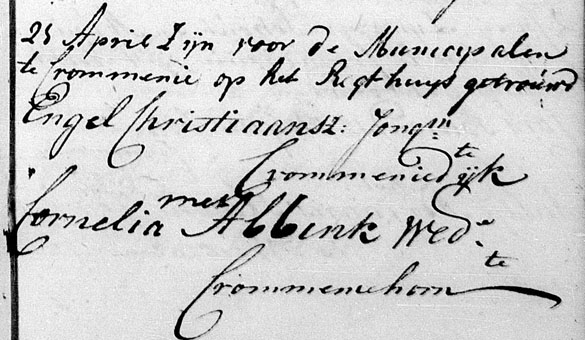 25 April Zijn voor de Municipalen
te Crommenie op het Regthuys getrouwd
Engel Christiaansz: Jongm.
te
Crommeniedijk
met
Cornelia Abbink Wedᵉ.
te
Crommeniehorn